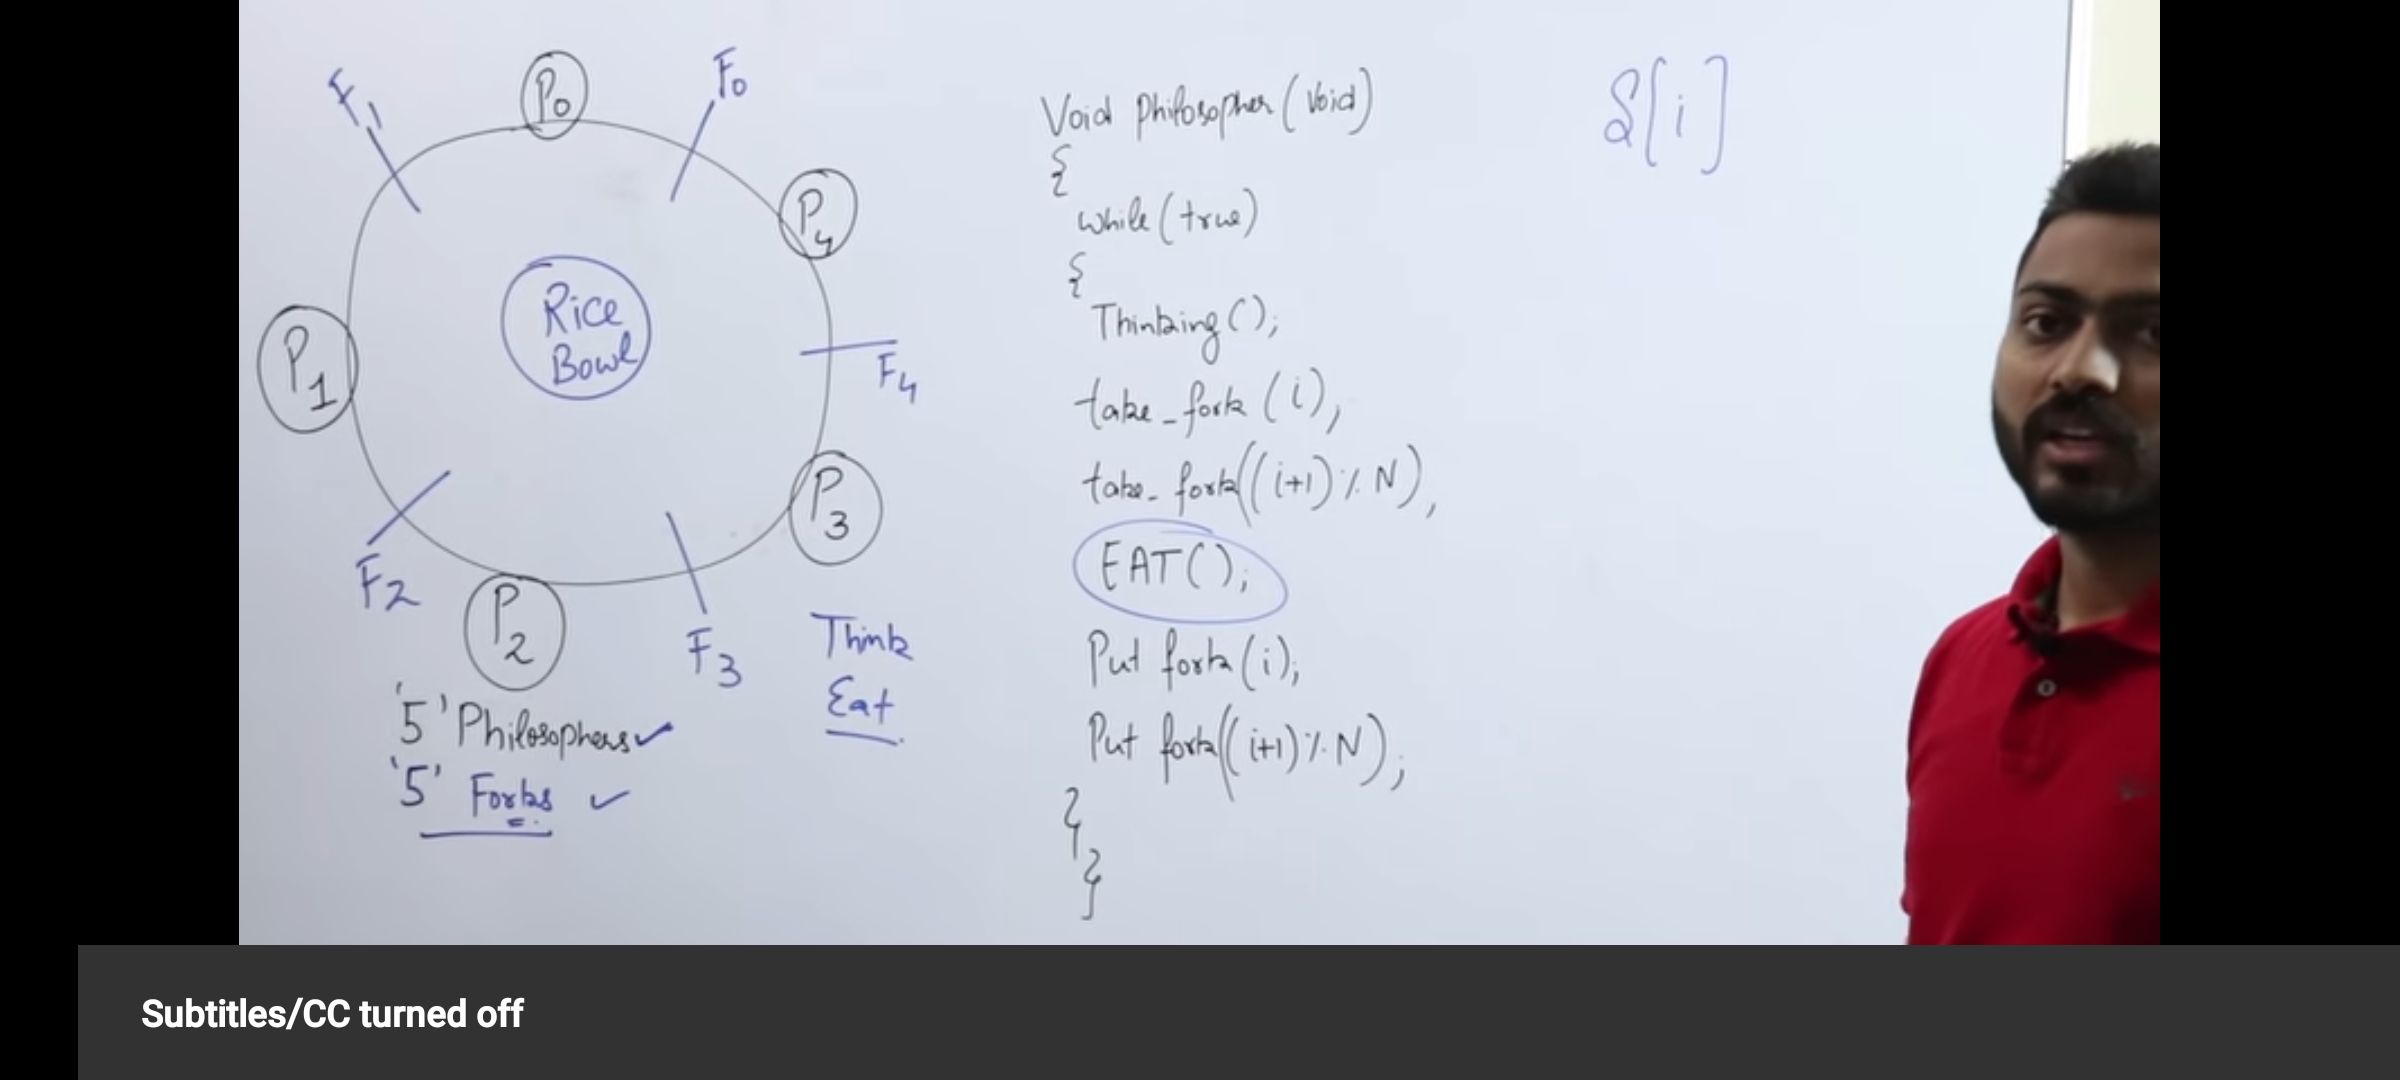 F1
P0
F0
P4
Rice
Bowl
P1
F4
P3
F2
P2
F3
Think
Eat
'5' Philosophers ✓
'5' Forks ✓
Void Philosopher (Void)
{
while (true)
{
Thinking ();
take_fork (i);
take_fork((i+1) % N);
EAT();
Put fork (i);
Put fork((i+1) % N);
}
}
S[i]
Subtitles/CC turned off